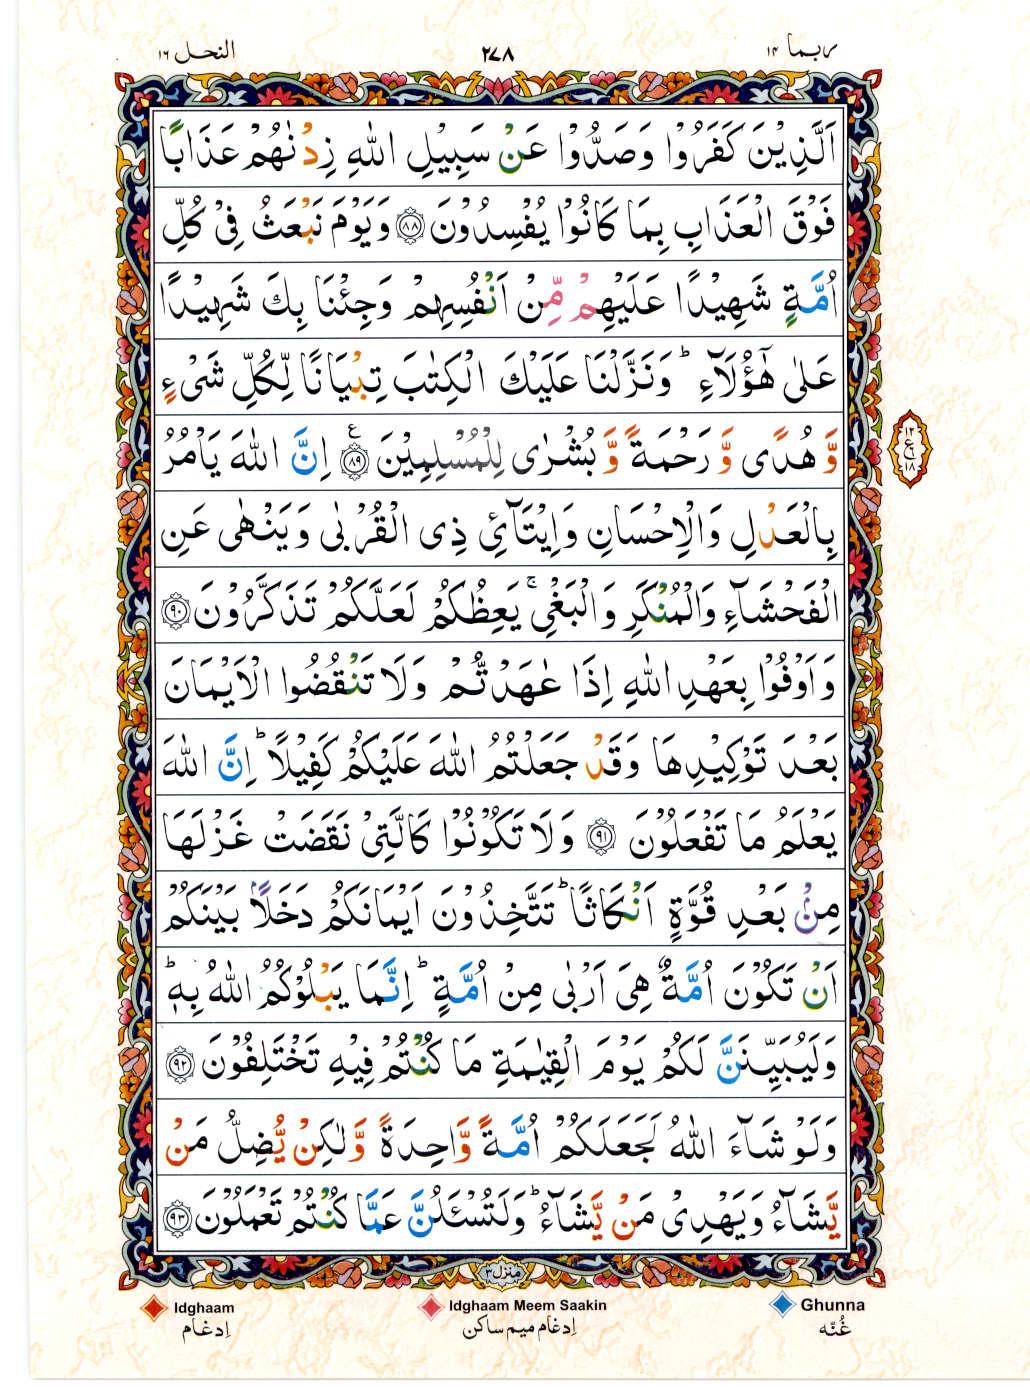 ربما ١٤
٢٧٨
النحل ١٦
اَلَّذِيْنَ كَفَرُوْا وَصَدُّوْا عَنْ سَبِيْلِ اللّٰهِ زِدْنٰهُمْ عَذَابًا
فَوْقَ الْعَذَابِ بِمَا كَانُوْا يُفْسِدُوْنَ ﴿٨٨﴾ وَيَوْمَ نَبْعَثُ فِىْ كُلِّ
اُمَّةٍ شَهِيْدًا عَلَيْهِمْ مِّنْ اَنْفُسِهِمْ وَجِئْنَا بِكَ شَهِيْدًا
عَلٰى هٰٓؤُلَآءِ ؕ وَنَزَّلْنَا عَلَيْكَ الْكِتٰبَ تِبْيَانًا لِّكُلِّ شَىْءٍ
وَّهُدًى وَّرَحْمَةً وَّبُشْرٰى لِلْمُسْلِمِيْنَ ﴿٨٩﴾ ع اِنَّ اللّٰهَ يَاْمُرُ
١٢
ع
٦
١٨
بِالْعَدْلِ وَالْاِحْسَانِ وَاِيْتَآئِ ذِى الْقُرْبٰى وَيَنْهٰى عَنِ
الْفَحْشَآءِ وَالْمُنْكَرِ وَالْبَغْىِ ۚ يَعِظُكُمْ لَعَلَّكُمْ تَذَكَّرُوْنَ ﴿٩٠﴾
وَاَوْفُوْا بِعَهْدِ اللّٰهِ اِذَا عٰهَدْتُّمْ وَلَا تَنْقُضُوا الْاَيْمَانَ
بَعْدَ تَوْكِيْدِهَا وَقَدْ جَعَلْتُمُ اللّٰهَ عَلَيْكُمْ كَفِيْلًا ؕ اِنَّ اللّٰهَ
يَعْلَمُ مَا تَفْعَلُوْنَ ﴿٩١﴾ وَلَا تَكُوْنُوْا كَالَّتِىْ نَقَضَتْ غَزْلَهَا
مِنْۢ بَعْدِ قُوَّةٍ اَنْكَاثًا ؕ تَتَّخِذُوْنَ اَيْمَانَكُمْ دَخَلًاۢ بَيْنَكُمْ
اَنْ تَكُوْنَ اُمَّةٌ هِىَ اَرْبٰى مِنْ اُمَّةٍ ؕ اِنَّمَا يَبْلُوْكُمُ اللّٰهُ بِهٖ ؕ
وَلَيُبَيِّنَنَّ لَكُمْ يَوْمَ الْقِيٰمَةِ مَا كُنْتُمْ فِيْهِ تَخْتَلِفُوْنَ ﴿٩٢﴾
وَلَوْ شَآءَ اللّٰهُ لَجَعَلَكُمْ اُمَّةً وَّاحِدَةً وَّلٰكِنْ يُّضِلُّ مَنْ
يَّشَآءُ وَيَهْدِىْ مَنْ يَّشَآءُ ؕ وَلَتُسْـَٔلُنَّ عَمَّا كُنْتُمْ تَعْمَلُوْنَ ﴿٩٣﴾
منزل ٣
Idghaam
Idghaam Meem Saakin
Ghunna
اِدغام
اِدغام میم ساکن
غُنّه